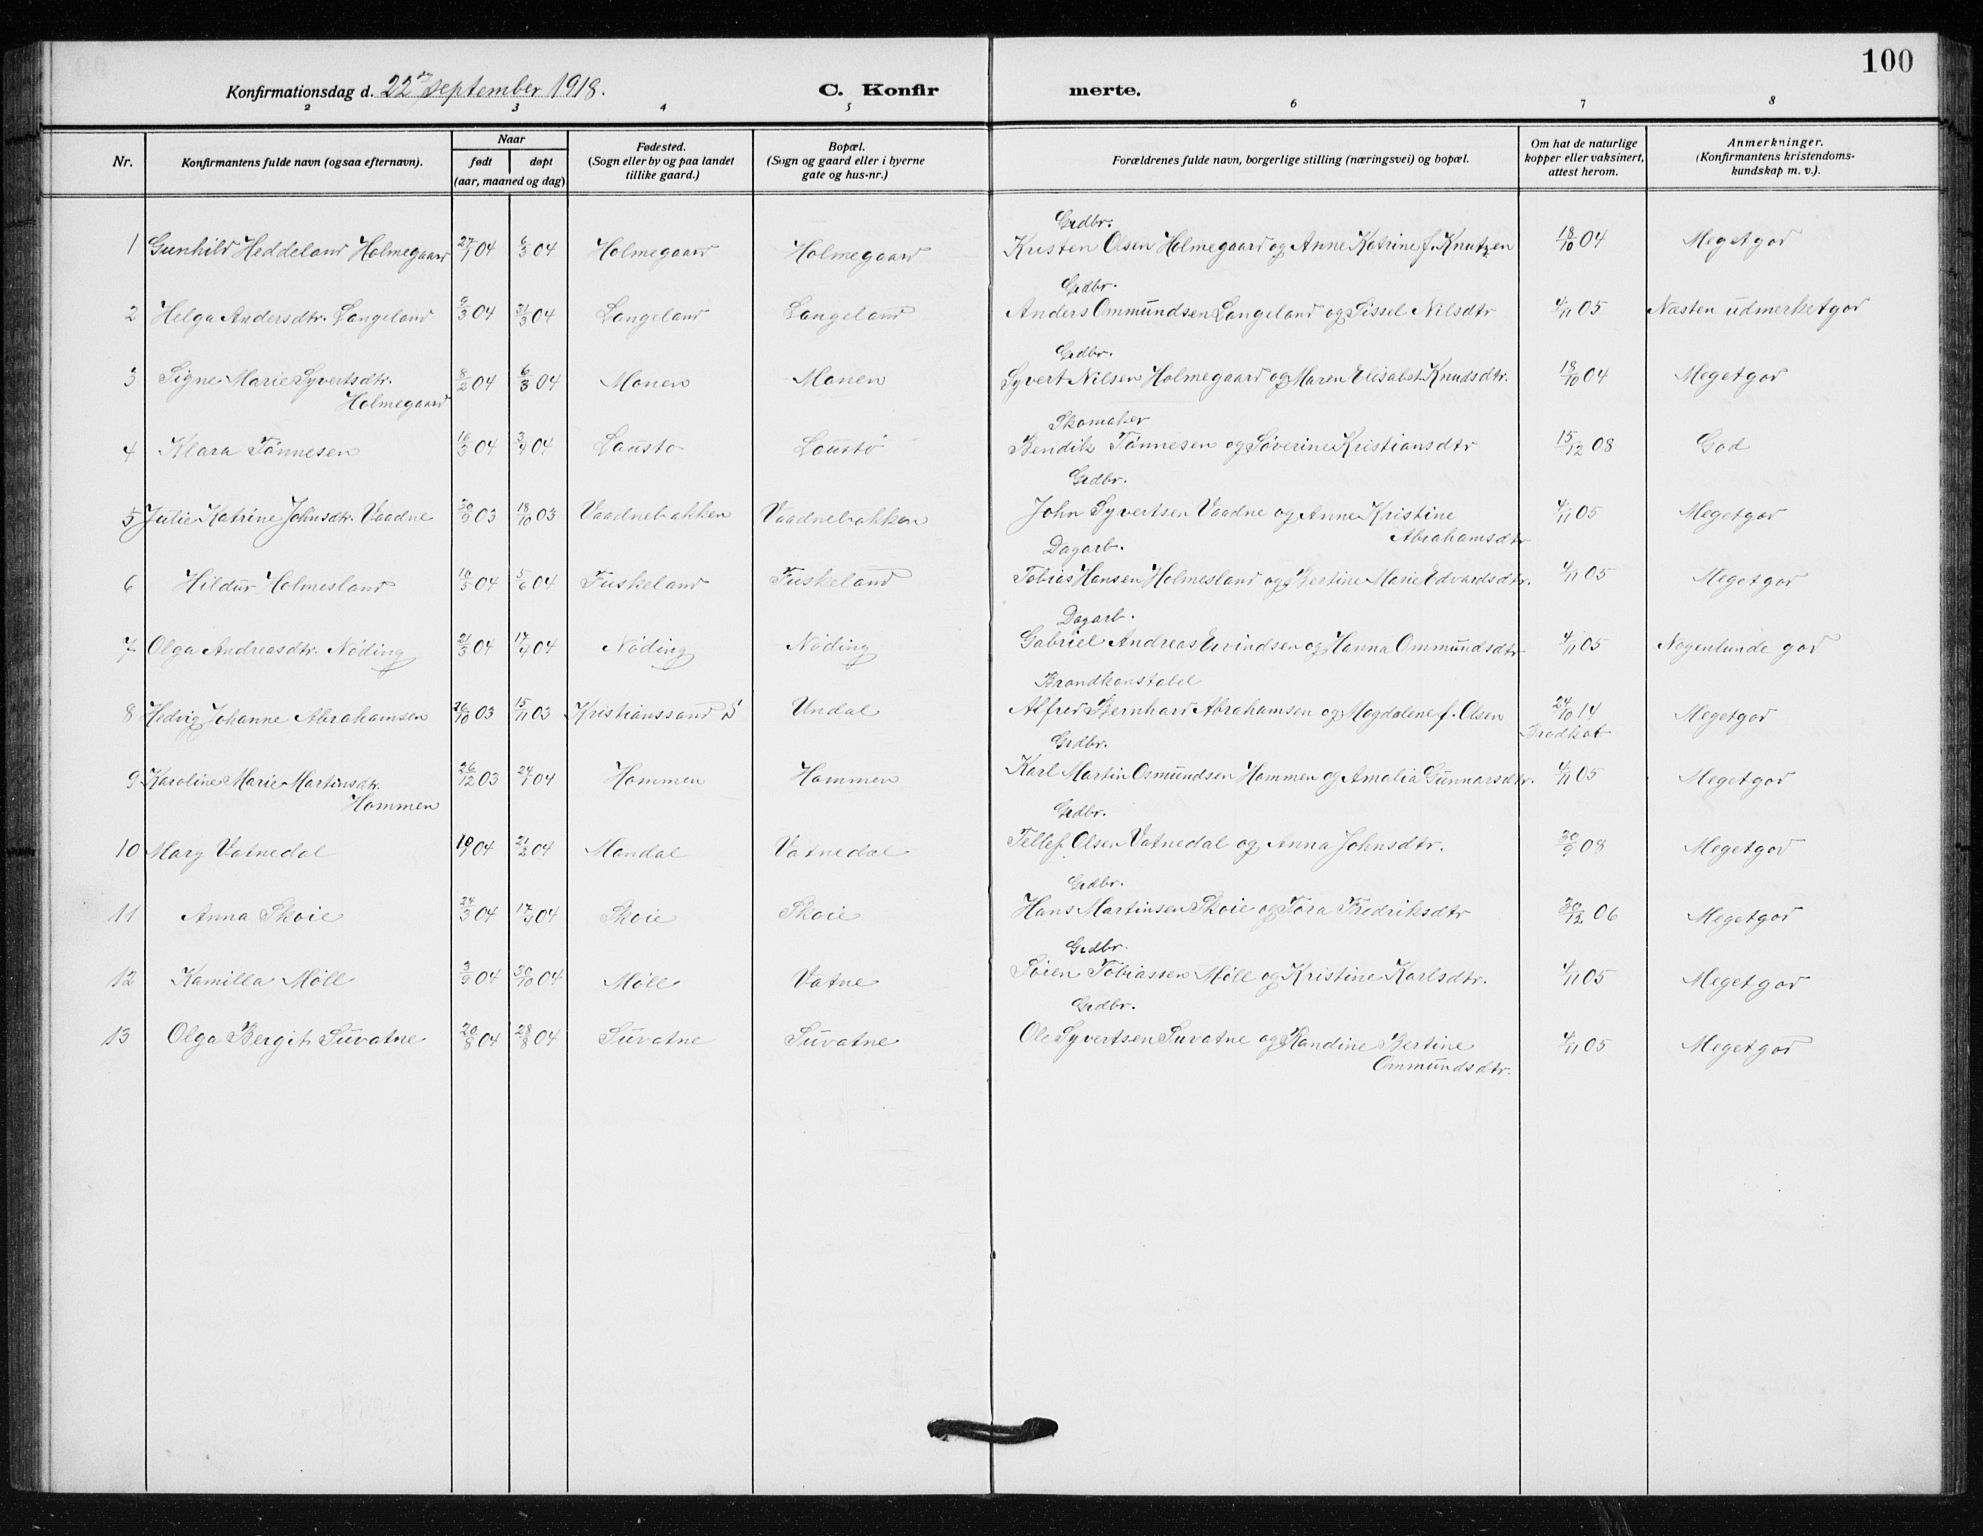 100
Konfirmationsdag d. 22de september 1918.
C. Konfirmerte.
2 3 4 5 6 7 8
Nr. Konfirmantens fulde navn (ogsaa efternavn). Naar født døpt (aar, maaned og dag) Fødested. (Sogn eller by og paa landet tillike gaard.) Bopæl. (Sogn og gaard eller i byerne gate og hus-nr.) Forældrenes fulde navn, borgerlige stilling (næringsvei) og bopæl. Om hat de naturlige kopper eller vaksinert, attest herom. Anmerkninger. (Konfirmantens kristendoms-kundskap m. v.).
Grdbr.
1 Gunhild Heddeland Holmegaard 27/1 04 6/3 04 Holmegaard Holmegaard Kristen Olsen Holmegaard og Anne Katrine f. Knutzen 18/10 04 Megetgod
Grdbr.
2 Helga Andersdtr. Langeland 9/3 04 31/3 04 Langeland Langeland Anders Ommundsen Langeland og Sissel Nilsdtr 4/11 05 Næsten udmerketgod
Grdbr.
3 Signe Marie Syvertsdtr. 8/2 04 6/3 04 Monen Monen Syvert Nilsen Holmegaard og Maren Elisabet Knudsdtr. 18/10 04 Megetgod
Holmegaard
Skomaker
4 Klara Tönnesen 16/3 04 3/4 04 Laustö Laustö Bendik Tönnesen og Söverine Kristiansdtr 15/12 08 God
Grdbr.
5 Julie Katrine Johnsdtr. Vaadne 30/9 03 18/10 03 Vaadnebakken Vaadnebakken John Syvertsen Vaadne og Anne Kristine 4/11 05 Megetgod
Abrahamsdtr
Dagarb.
6 Hildur Holmesland 10/5 04 5/6 04 Fuskeland Fuskeland Tobias Hansen Holmesland og Bertine Marie Edvardsdtr. 4/11 05 Megetgod
Dagarb.
7 Olga Andreasdtr. Nöding 21/3 04 17/4 04 Nöding Nöding Gabriel Andreas Eivindsen og Hanna Ommundsdtr 4/11 05 Nogenlunde god
Brandkonstabel
8 Hedvig Johanne Abrahamsen 26/10 03 15/11 03 Kristianssand S Undal Alfred Bernhard Abrahamsen og Magdalene f. Olsen 24/10 14 Megetgod
Grdbr.
9 Karoline Marie Martinsdtr. 26/12 03 24/1 04 Hommen Hommen Karl Martin Osmundsen Hommen og Amalia Gunnarsdtr. 4/11 05 Megetgod
Hommen
Grdbr.
10 Mary Vatnedal 10/1 04 21/2 04 Mandal Vatnedal Tellef Olsen Vatnedal og Anna Johnsdtr. 30/9 08 Megetgod
Grdbr.
11 Anna Skoie 24/3 04 17/4 04 Skoie Skoie Hans Martinsen Skoie og Tora Fredriksdtr 30/12 06 Megetgod
Grdbr.
12 Kamilla Möll 3/9 04 30/10 04 Möll Vatne Sören Tobiassen Möll og Kristine Karlsdtr. 4/11 05 Megetgod
Grdbr.
13 Olga Bergit Suvatne 20/8 04 28/8 04 Suvatne Suvatne Ole Syvertsen Suvatne og Randine Bertine 4/11 05 Megetgod
Ommundsdtr.